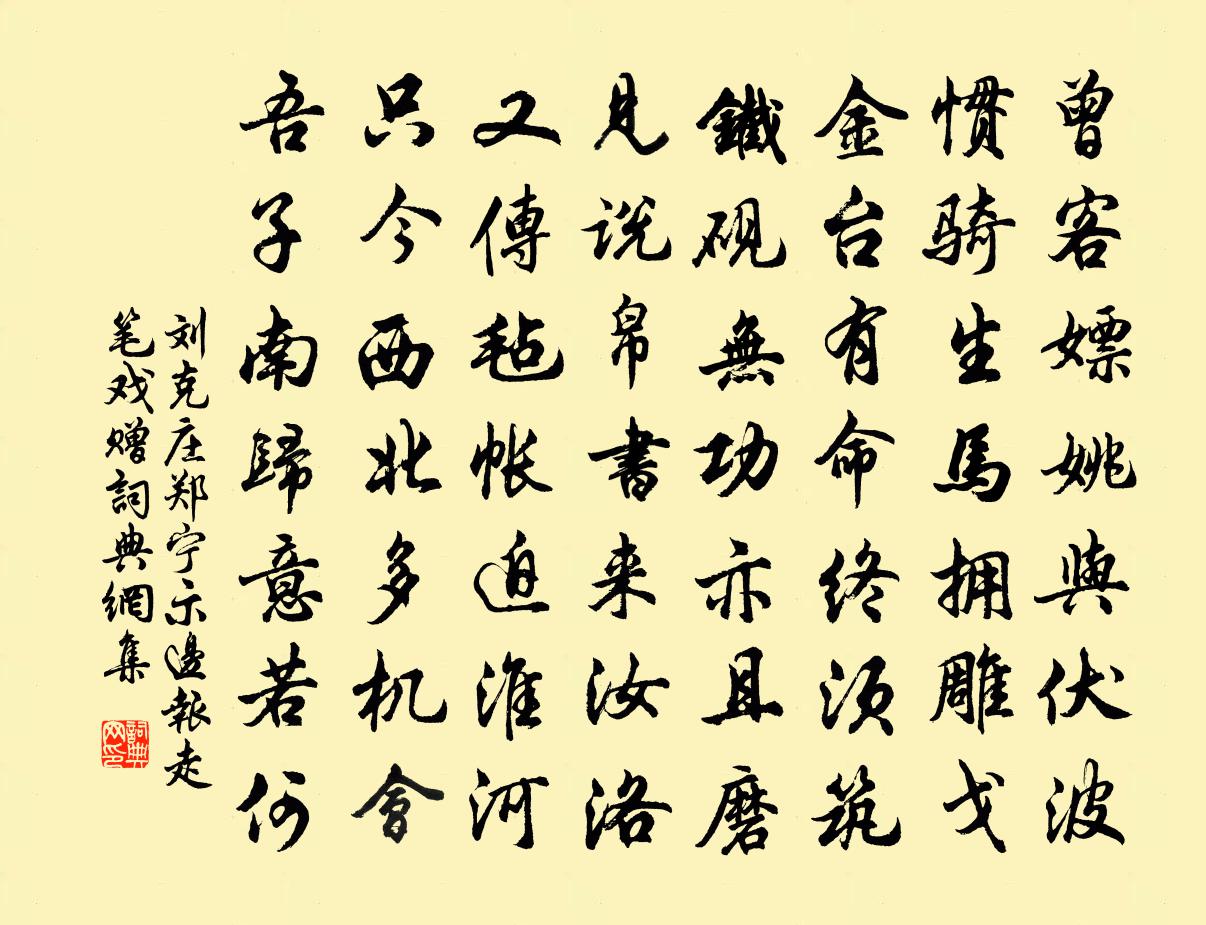 曾客嫖姚與伏波
惯骑生馬拥雕戈
金台有命终须筑
鐵砚無功亦且磨
見说帛書来汝洛
又傳毡帐迫淮河
只今西北多机會
吾子南歸意若何
刘克庄郑宁示邊報走
笔戏赠詞典網集
詞典
网印